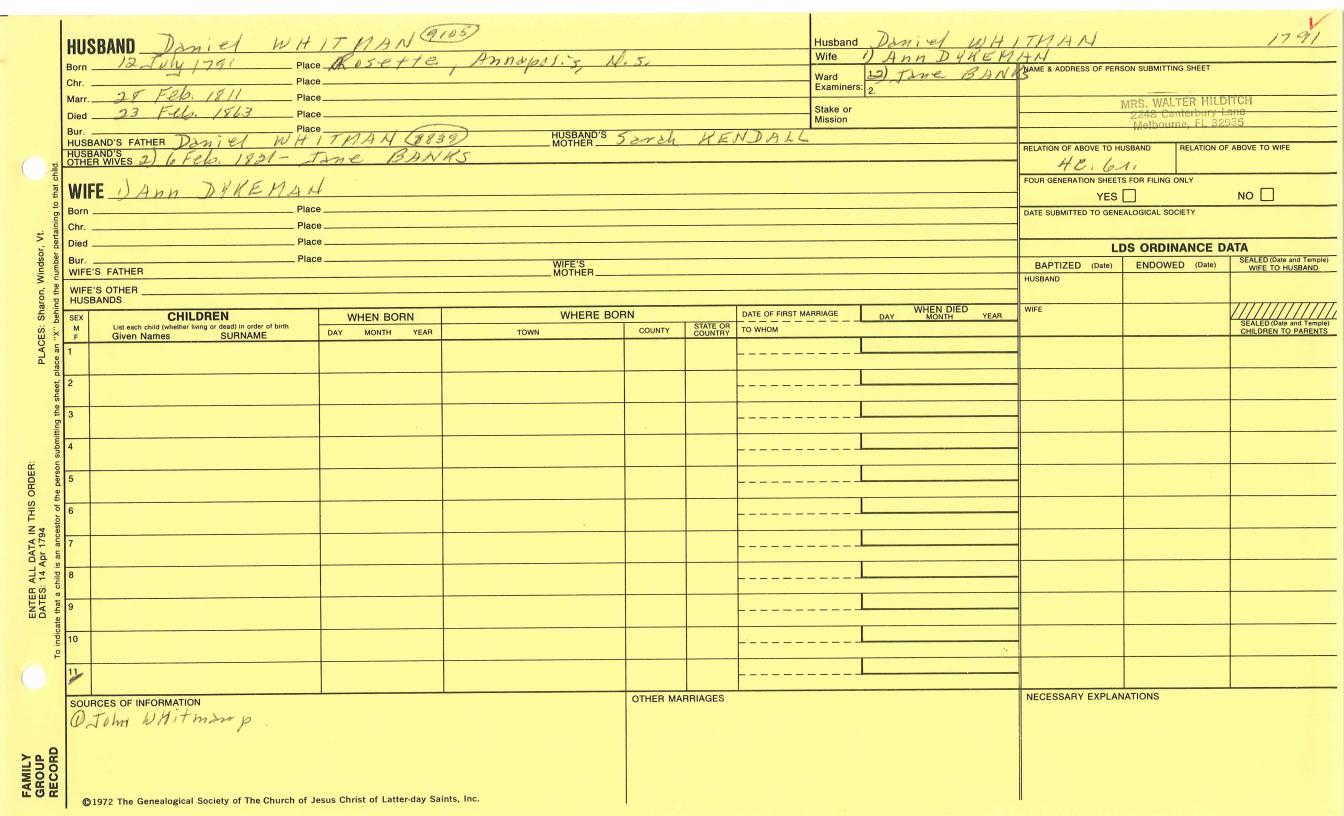 HUSBAND Daniel WHITMAN 9105
Born 12 July 1791 Place Rosette, Annapolis, N.S.
Chr. Place
Marr. 28 Feb. 1811 Place
Died 23 Feb. 1863 Place
Bur. Place
HUSBAND'S FATHER Daniel WHITMAN 8839 HUSBAND'S MOTHER Sarah KENDALL
HUSBAND'S OTHER WIVES 2) 6 Feb. 1821- Jane BANKS
WIFE 1) Ann DYKEMAN
Born Place
Chr. Place
Died Place
Bur. Place
WIFE'S FATHER WIFE'S MOTHER
WIFE'S OTHER HUSBANDS
Husband Daniel WHITMAN 1791
Wife 1) Ann DYKEMAN
Ward Examiners: 1. 2) Jane BANKS
2.
Stake or Mission
NAME & ADDRESS OF PERSON SUBMITTING SHEET
MRS. WALTER HILDITCH
2248 Canterbury Lane
Melbourne, FL 32935
RELATION OF ABOVE TO HUSBAND RELATION OF ABOVE TO WIFE
4c. 6r.
FOUR GENERATION SHEETS FOR FILING ONLY
YES NO
DATE SUBMITTED TO GENEALOGICAL SOCIETY
LDS ORDINANCE DATA
BAPTIZED (Date) ENDOWED (Date) SEALED (Date and Temple) WIFE TO HUSBAND
HUSBAND
WIFE
SEALED (Date and Temple) CHILDREN TO PARENTS
SEX M F
CHILDREN
List each child (whether living or dead) in order of birth
Given Names SURNAME
WHEN BORN
DAY MONTH YEAR
WHERE BORN
TOWN COUNTY STATE OR COUNTRY
DATE OF FIRST MARRIAGE
TO WHOM
WHEN DIED
DAY MONTH YEAR
1
2
3
4
5
6
7
8
9
10
11
SOURCES OF INFORMATION
① John WHitman p.
OTHER MARRIAGES
NECESSARY EXPLANATIONS
©1972 The Genealogical Society of The Church of Jesus Christ of Latter-day Saints, Inc.
FAMILY GROUP RECORD
ENTER ALL DATA IN THIS ORDER:
DATES: 14 Apr 1794
PLACES: Sharon, Windsor, Vt.
To indicate that a child is an ancestor of the person submitting the sheet, place an "X" behind the number pertaining to that child.